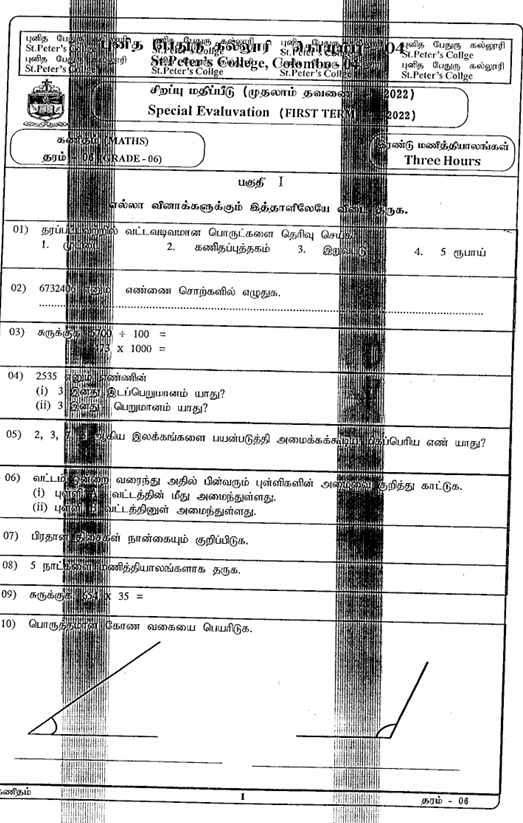 புனித பேதுரு கல்லூரி கொழும்பு - 04
St.Peter's College, Colombo 04
புனித பேதுரு கல்லூரி
St.Peter's Collge
புனித பேதுரு கல்லூரி
St.Peter's Collge
சிறப்பு மதிப்பீடு (முதலாம் தவணை 2022)
Special Evaluvation (FIRST TERM 2022)
கணிதம் (MATHS)
தரம் - 06 (GRADE - 06)
இரண்டு மணித்தியாலங்கள்
Three Hours
பகுதி I
எல்லா வினாக்களுக்கும் இத்தாளிலேயே விடை தருக.
01) தரப்பட்டவற்றில் வட்டவடிவமான பொருட்களை தெரிவு செய்க.
1. முட்டை 2. கணிதப்புத்தகம் 3. 4. 5 ரூபாய்
02) 6732405 எனும் எண்ணை சொற்களில் எழுதுக.
03) சுருக்குக. 5700 ÷ 100 =
473 x 1000 =
04) 2535 எனும் எண்ணின்
(i) 3 இனது இடப்பெறுமானம் யாது?
(ii) 3 இனது பெறுமானம் யாது?
05) 2, 3, 7, ஆகிய இலக்கங்களை பயன்படுத்தி அமைக்கக்கூடிய மிகப்பெரிய எண் யாது?
06) வட்டம் ஒன்றை வரைந்து அதில் பின்வரும் புள்ளிகளின் அமைவை குறித்து காட்டுக.
(i) புள்ளி A வட்டத்தின் மீது அமைந்துள்ளது.
(ii) புள்ளி B வட்டத்தினுள் அமைந்துள்ளது.
07) பிரதான திசைகள் நான்கையும் குறிப்பிடுக.
08) 5 நாட்களை மணித்தியாலங்களாக தருக.
09) சுருக்குக. 654 x 35 =
10) பொருத்தமான கோண வகையை பெயரிடுக.
கணிதம் 1 தரம் - 06